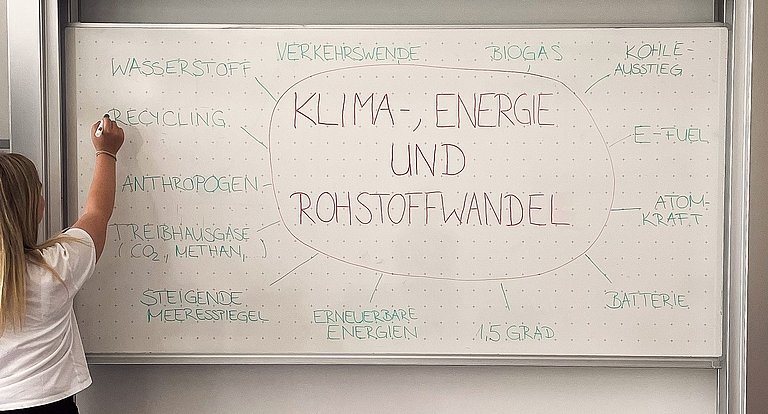 KLIMA-, ENERGIE
UND
ROHSTOFFWANDEL
WASSERSTOFF
VERKEHRSWENDE
BIOGAS
KOHLE-
AUSSTIEG
E-FUEL
ATOM-
KRAFT
BATTERIE
1,5 GRAD
ERNEUERBARE
ENERGIEN
STEIGENDE
MEERESSPIEGEL
TREIBHAUSGASE
(CO2, METHAN, )
ANTHROPOGEN
RECYCLING